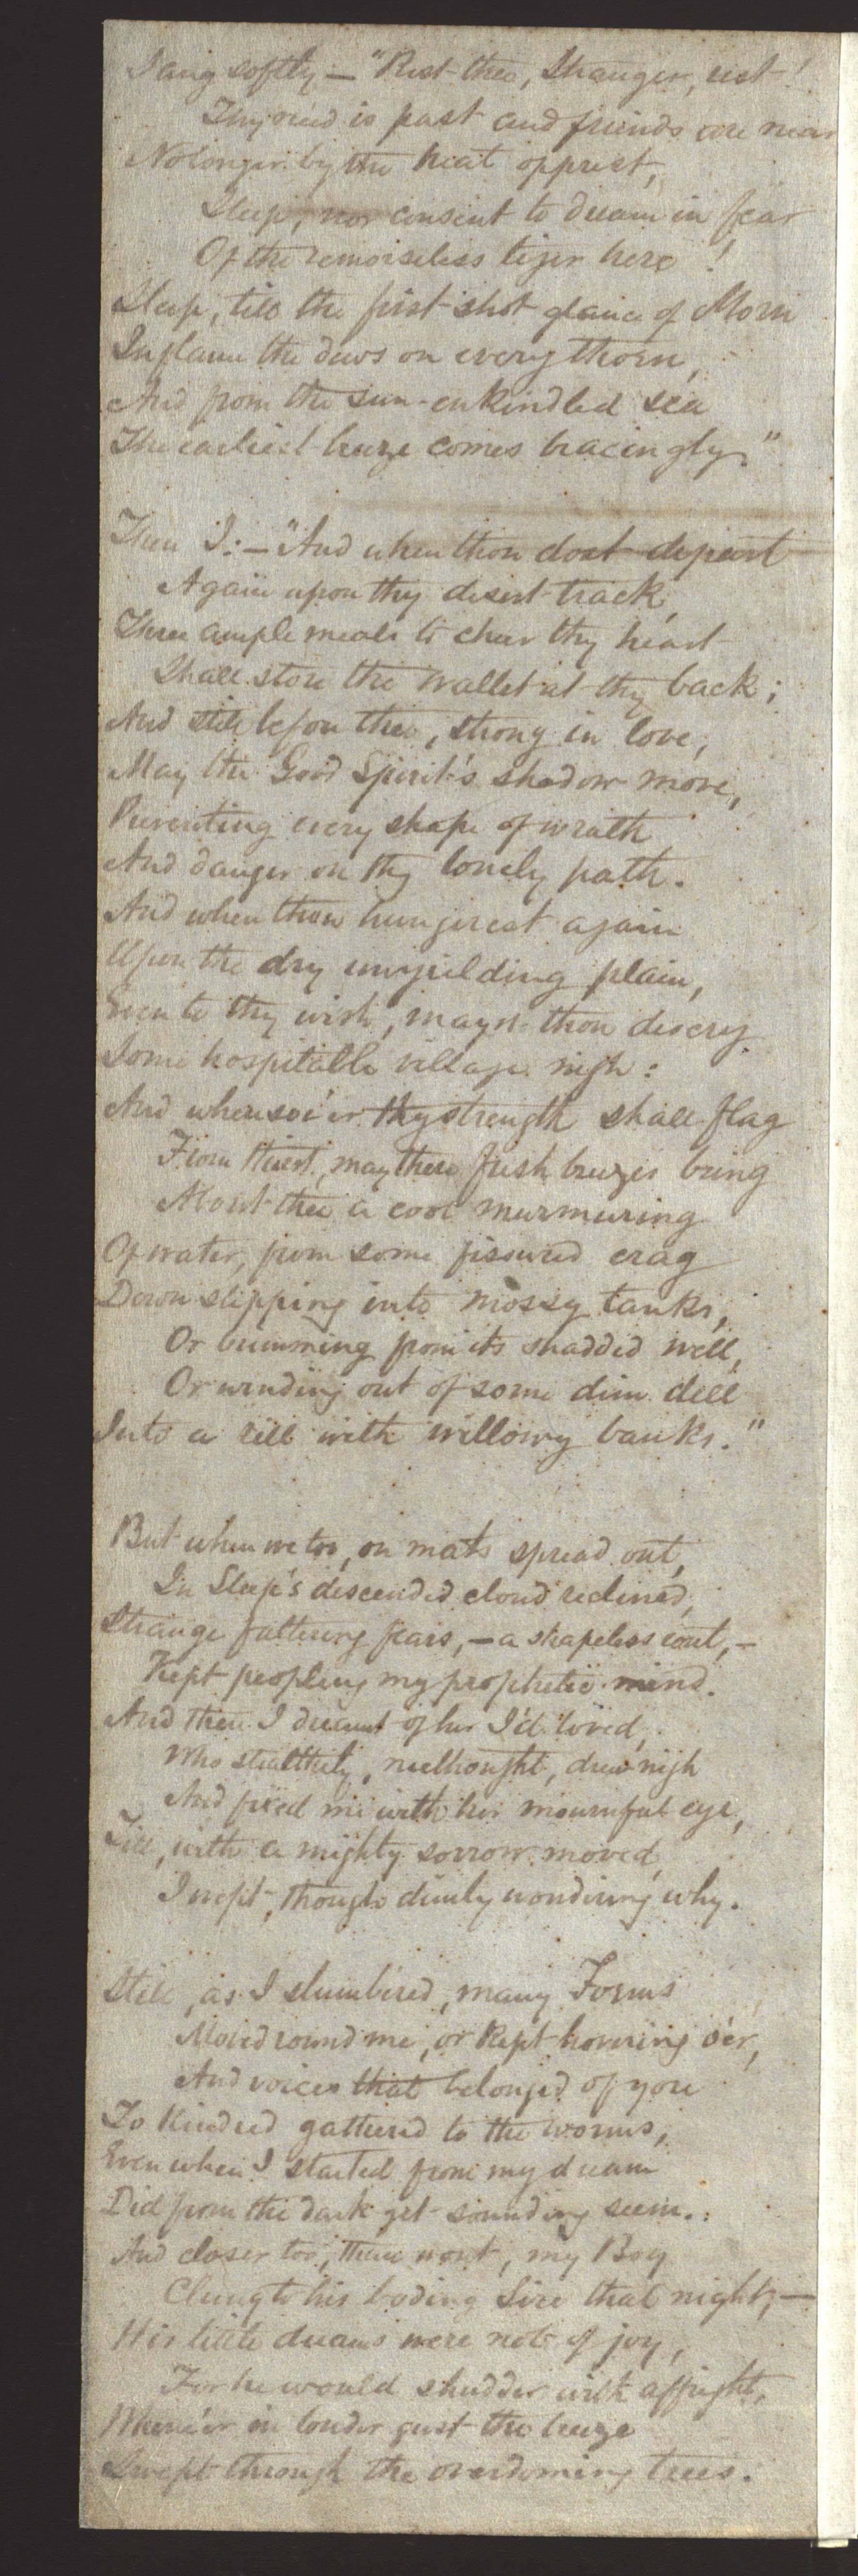 Sang softly — "Rest thee, Stranger, rest!
Thy need is past and friends are near
No longer by the heat opprest,
Sleep, nor consent to dream in fear
Of the remorseless tiger here!
Sleep, till the first-shot glance of Morn
Inflame the dews on every thorn,
And from the sun-enkindled sea
The earliest breeze comes bracingly."
Then I: — "And when thou dost depart
Again upon thy desert track,
Three ample meals to cheer thy heart
Shall store the wallet at thy back;
And still before thee, strong in love,
May the Good Spirit's shadow move,
Preventing every shape of wrath
And danger on thy lonely path.
And when thou hungerest again
Upon the dry unyielding plain,
Even to thy wish, mayst thou descry
Some hospitable village nigh:
And whensoe'er thy strength shall flag
From thirst, may there fresh breezes bring
About thee a cool murmuring
Of water, from some fissured crag
Down slipping into mossy tanks,
Or brimming from its shadded well,
Or winding out of some dim dell
Into a rill with willowy banks."
But when we too, on mats spread out,
In Sleep's descended cloud reclined,
Strange faltering fears, — a shapeless rout, —
Kept peopling my prophetic mind.
And then I dreamt of her I'd loved,
Who stealthily, methought, drew nigh
And fixed me with her mournful eye,
Till, with a mighty sorrow moved,
I wept, though dimly wondering why.
Still, as I slumbered, many Forms
Moved round me, or kept hovering o'er,
And voices that belonged of yore
To Kindred gathered to the worms,
Even when I started from my dream
Did from the dark yet sounding seem.
And closer too, than wont, my Boy
Clung to his boding Sire that night, —
His little dreams were not of joy,
For he would shudder with affright,
Whene'er in louder gust the breeze
Swept through the overdoming trees.